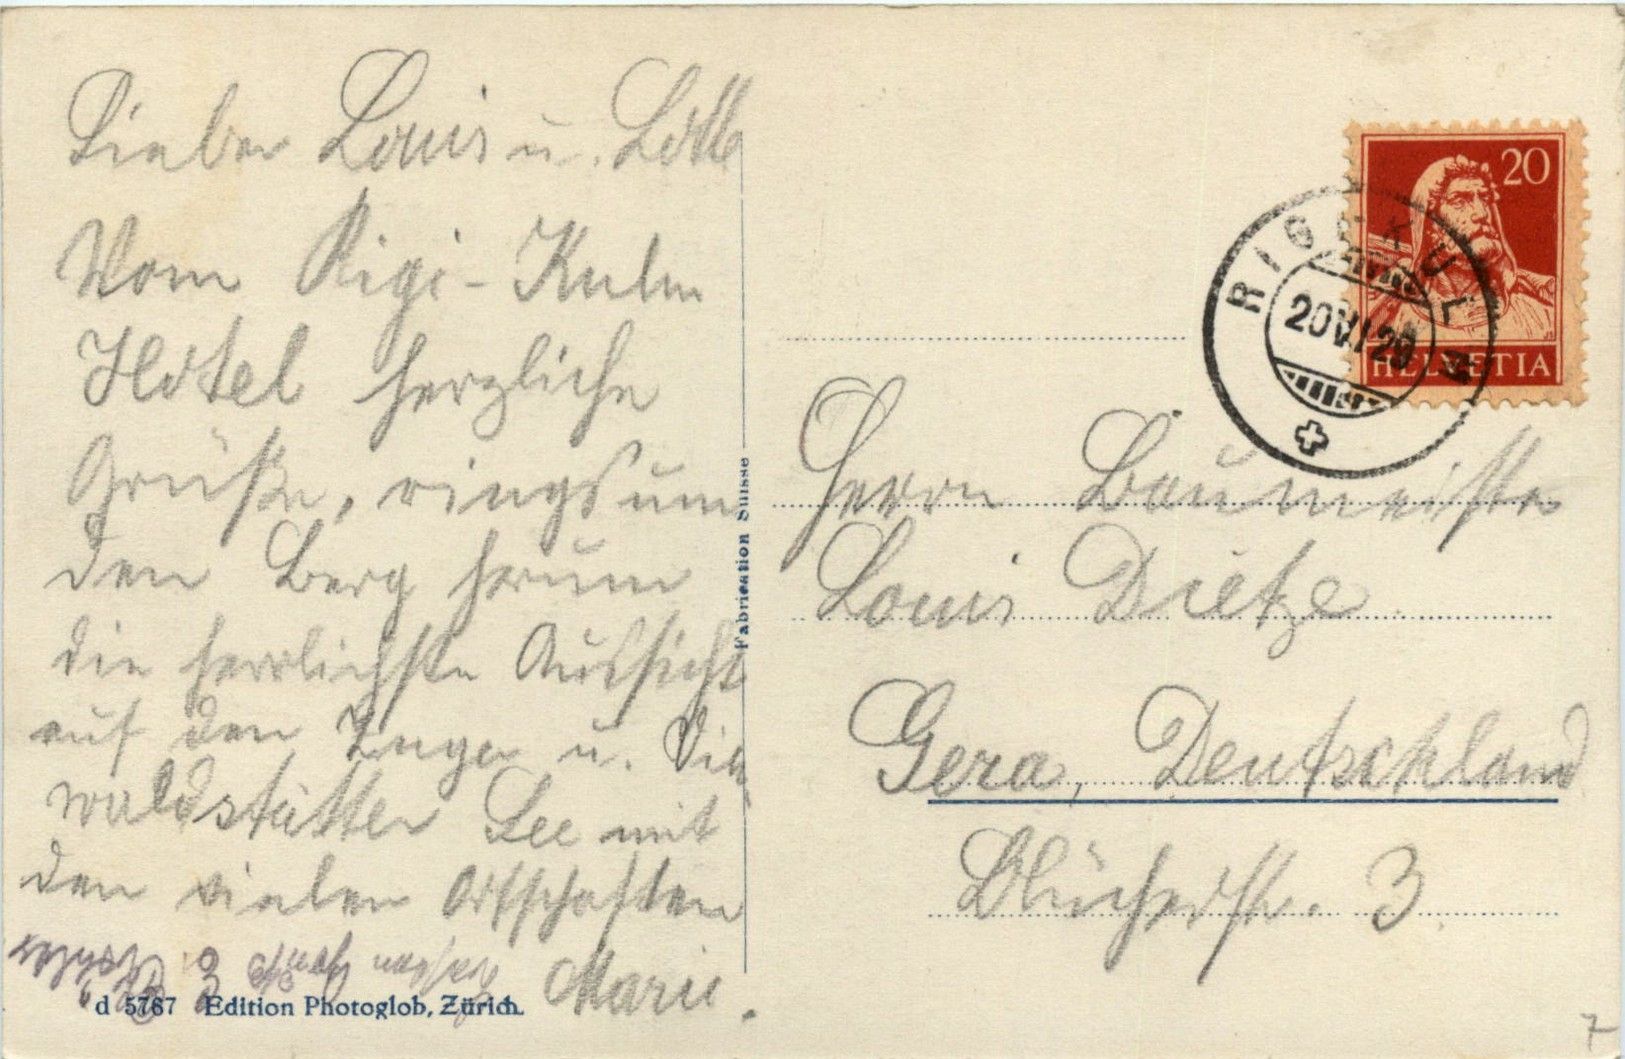 Lieber Louis u. Lotte
Vom Rigi-Kulm
Hotel herzliche
Grüße, rings um
den Berg herum
die herrlichste Aussicht
auf den Zuger u. Vier
waldstätter See mit
den vielen Ortschaften
Marie.
d 5767 Edition Photoglob, Zürich.
Fabrication Suisse
20
HELVETIA
RIGI-KULM
20.VI.29
Herrn Baumeister
Louis Dietze
Gera, Deutschland
Blücherstr. 3
7